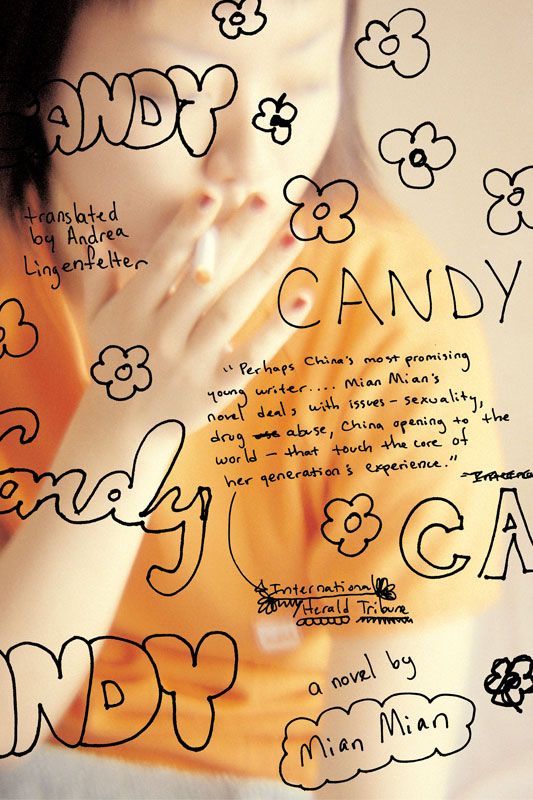 CANDY
translated
by Andrea
Lingenfelter
CANDY
"Perhaps China's most promising
young writer.... Mian Mian's
novel deals with issues – sexuality,
drug abuse, China opening to the
world – that touch the core of
her generation's experience."
Candy
CA
International
Herald Tribune
ANDY
a novel by
Mian Mian